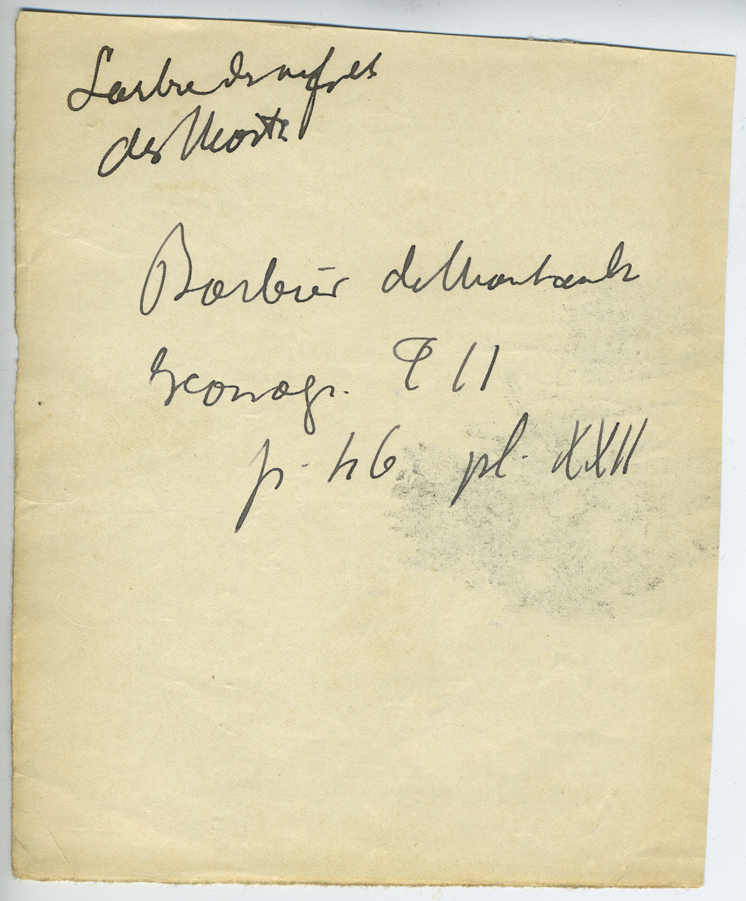 L'arbre des
des Morts
Barbier de Montault
Iconogr. T II
p. 46 pl. XXII